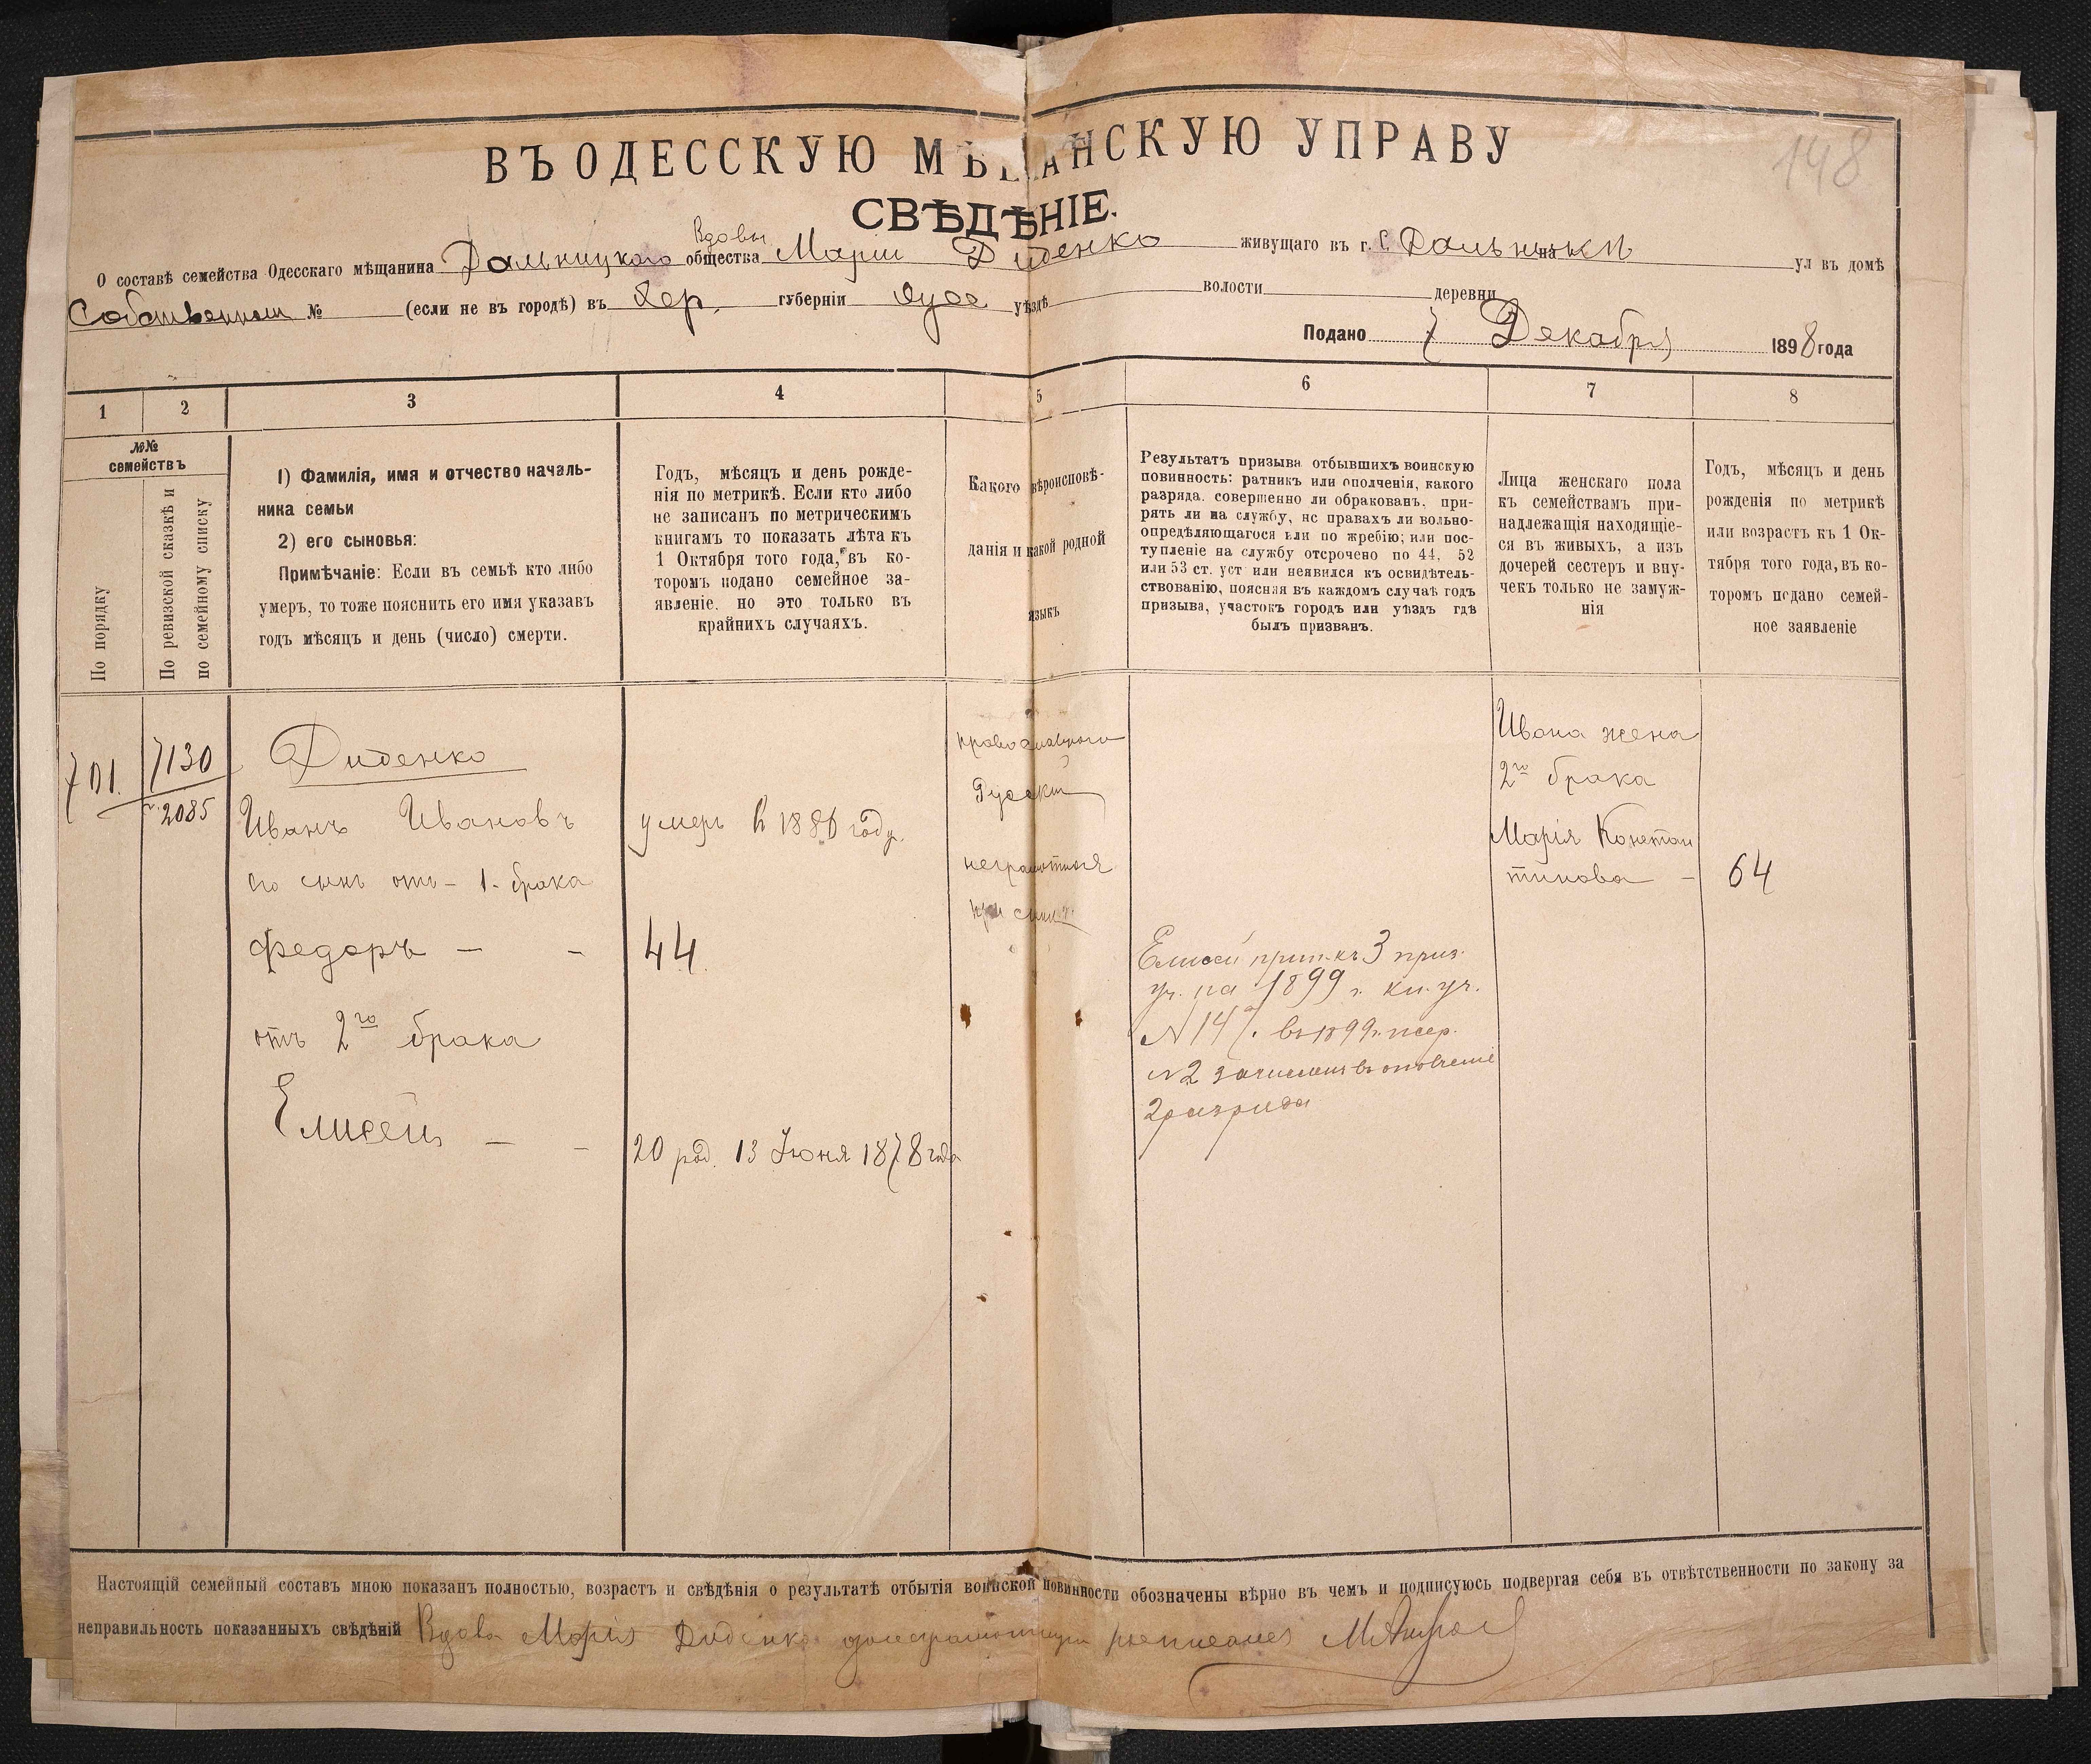 148
ВЪ ОДЕССКУЮ МѢЩАНСКУЮ УПРАВУ
СВѢДѢНІЕ.
Вдовы
О составѣ семейства Одесскаго мѣщанина Дальницкаго общества Маріи Диденко живущаго въ г. с Дальники на ул въ домѣ
Собственном № (если не въ городѣ) въ Хер. губерніи Одес уѣздѣ волости деревни
Подано 7 Декабря 1898 года
1 2 3 4 5 6 7 8
№№
семействъ
По порядку
По ревизской сказкѣ и
по семейному списку
1) Фамилія, имя и отчество началь-
ника семьи
2) его сыновья:
Примѣчаніе: Если въ семьѣ кто либо
умеръ, то тоже пояснить его имя указавъ
годъ мѣсяцъ и день (число) смерти.
Годъ, мѣсяцъ и день рожде-
нія по метрикѣ. Если кто либо
не записанъ по метрическимъ
книгамъ то показать лѣта къ
1 Октября того года, въ ко-
торомъ подано семейное за-
явленіе, но это только въ
крайнихъ случаяхъ.
Какого вѣроисповѣ-
данія и какой родной
языкъ
Результатъ призыва отбывшихъ воинскую
повинность: ратникъ или ополченія, какого
разряда, совершенно ли обракованъ, при-
рятъ ли на службу, нс правахъ ли вольно-
опредѣляющагося или по жребію; или пос-
тупленіе на службу отсрочено по 44, 52
или 53 ст. уст или неявился къ освидѣтель-
ствованію, поясняя въ каждомъ случаѣ годъ
призыва, участокъ городъ или уѣздъ гдѣ
былъ призванъ.
Лица женскаго пола
къ семействамъ при-
надлежащія находящіе-
ся въ живыхъ, а изъ
дочерей сестеръ и вну-
чекъ только не замуж-
нія
Годъ, мѣсяцъ и день
рожденія по метрикѣ
или возрастъ къ 1 Ок-
тября того года, въ ко-
торомъ подано семей-
ное заявленіе
701.
7130
2085
Диденко
Иванъ Ивановъ
его сынъ отъ - 1. брака
Федоръ — —
отъ 2го брака
Елисей — —
умеръ в 1886 году.
44.
20 род. 13 Іюня 1878 года
православного
Русскій
неграмотная
Елисей прип. къ 3 приз.
уч. на 1899 г. кн. уч.
N 147. въ 1899 г. жер.
N2 зачисленъ въ ополченіе
2 разряда
Ивана жена
2го брака
Марія Констан
тинова —
64
Настоящій семейный составъ мною показанъ полностью, возрастъ и свѣдѣнія о результатѣ отбытія воинской повинности обозначены вѣрно въ чемъ и подписуюсь подвергая себя въ отвѣтственности по закону за
неправильность показанныхъ свѣдѣній Вдова Марія Диденко